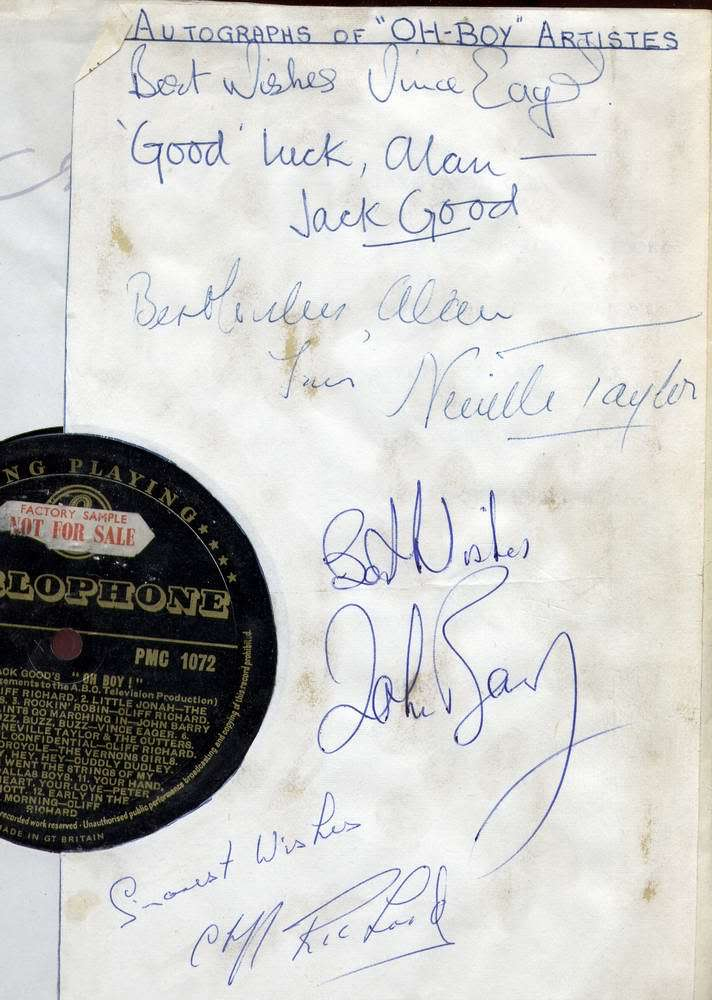 AUTOGRAPHS OF "OH-BOY" ARTISTES
Best Wishes Vince Eager
'Good' luck, Alan —
Jack Good
Best Wishes, Alan
Neville Taylor
Best Wishes
John Barry
Sincerest Wishes
Cliff Richard
NG PLAYING
FACTORY SAMPLE
NOT FOR SALE
LOPHONE
PMC 1072
ACK GOOD'S "OH BOY!"
ements to the A.B.C. Television Production)
IFF RICHARD. 2. LITTLE JONAH—THE
S. 3. ROCKIN' ROBIN—CLIFF RICHARD.
INTS GO MARCHING IN—JOHN BARRY
ZZ, BUZZ, BUZZ—VINCE EAGER.
NEVILLE TAYLOR & THE CUTTERS.
CONFIDENTIAL—CLIFF RICHARD.
ORCYCLE—THE VERNONS GIRLS.
HEY HEY—CUDDLY DUDLEY.
WENT THE STRINGS OF MY
ALLAS BOYS. 11. YOUR HAND,
HEART, YOUR LOVE—PETER
IOTT. 12. EARLY IN THE
MORNING—CLIFF
RICHARD
recorded work reserved · Unauthorised public performance broadcasting and copying of this record prohibited.
ADE IN GT BRITAIN